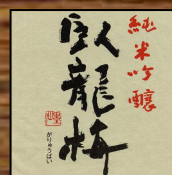 純米吟醸
臥龍梅
がりゅうばい